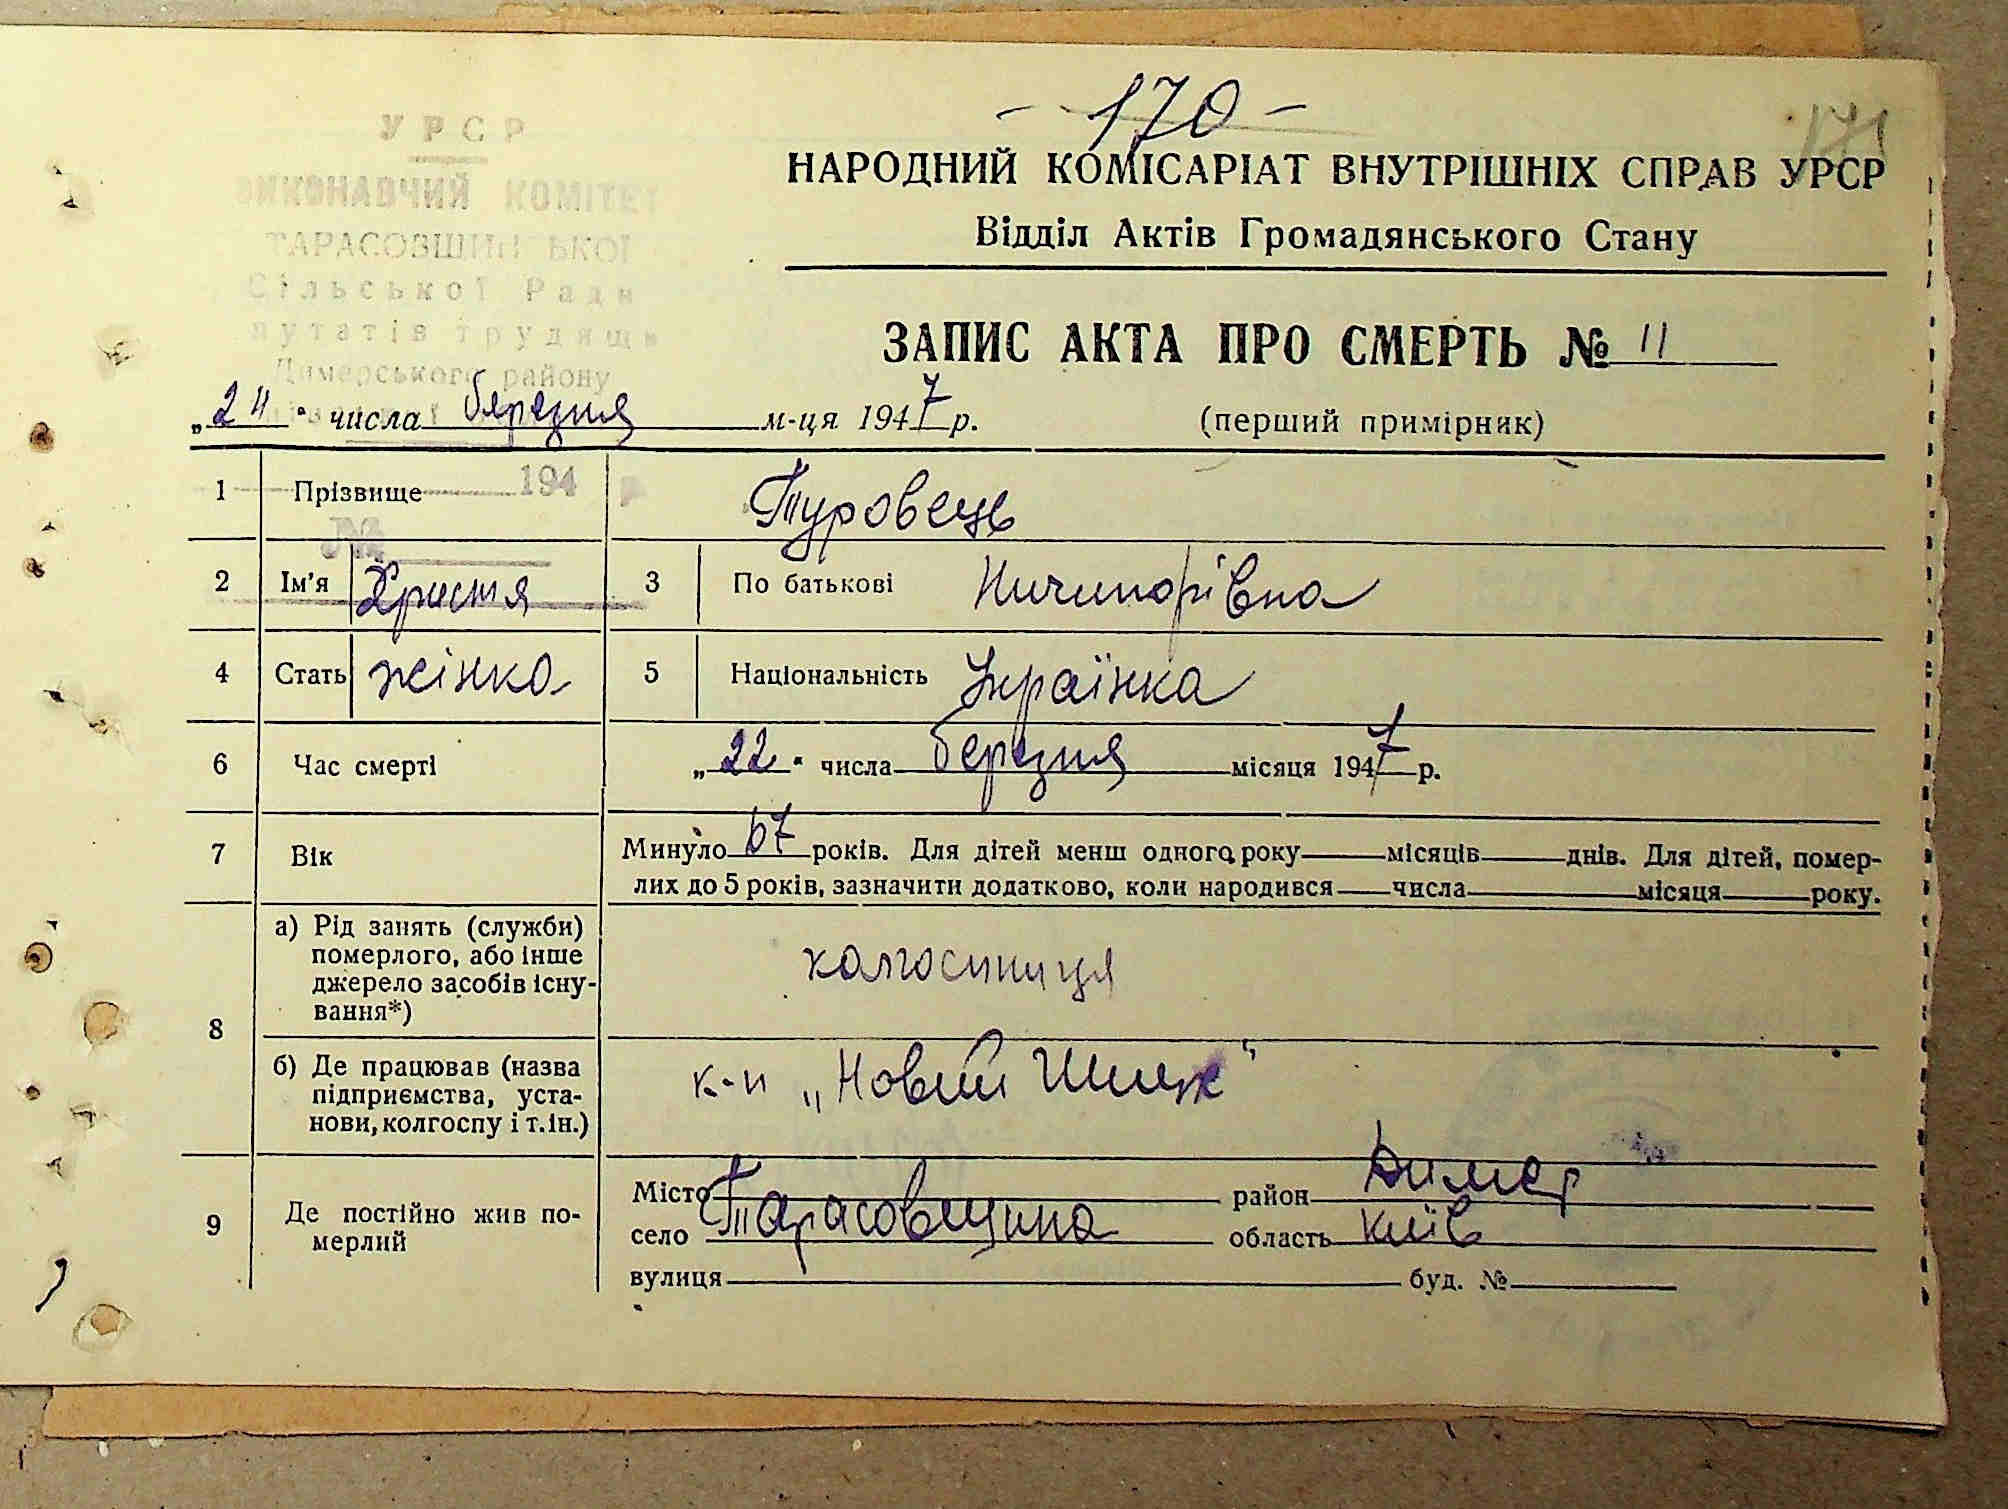 - 170 -
171
УРСР
ВИКОНАВЧИЙ КОМІТЕТ
ТАРАСОВЩИНСЬКОЇ
Сільської Ради
путатів трудящи
Димерського району
194
№
НАРОДНИЙ КОМІСАРІАТ ВНУТРІШНІХ СПРАВ УРСР
Відділ Актів Громадянського Стану
ЗАПИС АКТА ПРО СМЕРТЬ № 11
„24“ числа березня м-ця 1947 р. (перший примірник)
1 Прізвище Туровець
2 Ім'я Христя 3 По батькові Ничипорівна
4 Стать жінка 5 Національність Українка
6 Час смерті „22“ числа березня місяця 1947 р.
7 Вік Минуло 67 років. Для дітей менш одного року місяців днів. Для дітей, помер-
лих до 5 років, зазначити додатково, коли народився числа місяця року.
8 а) Рід занять (служби)
померлого, або інше
джерело засобів існу-
вання*) колгоспниця
б) Де працював (назва
підприємства, уста-
нови, колгоспу і т. ін.) к-п „Новий Шлях“
9 Де постійно жив по-
мерлий
Місто район Димер
село Тарасовщина область Київ
вулиця буд. №